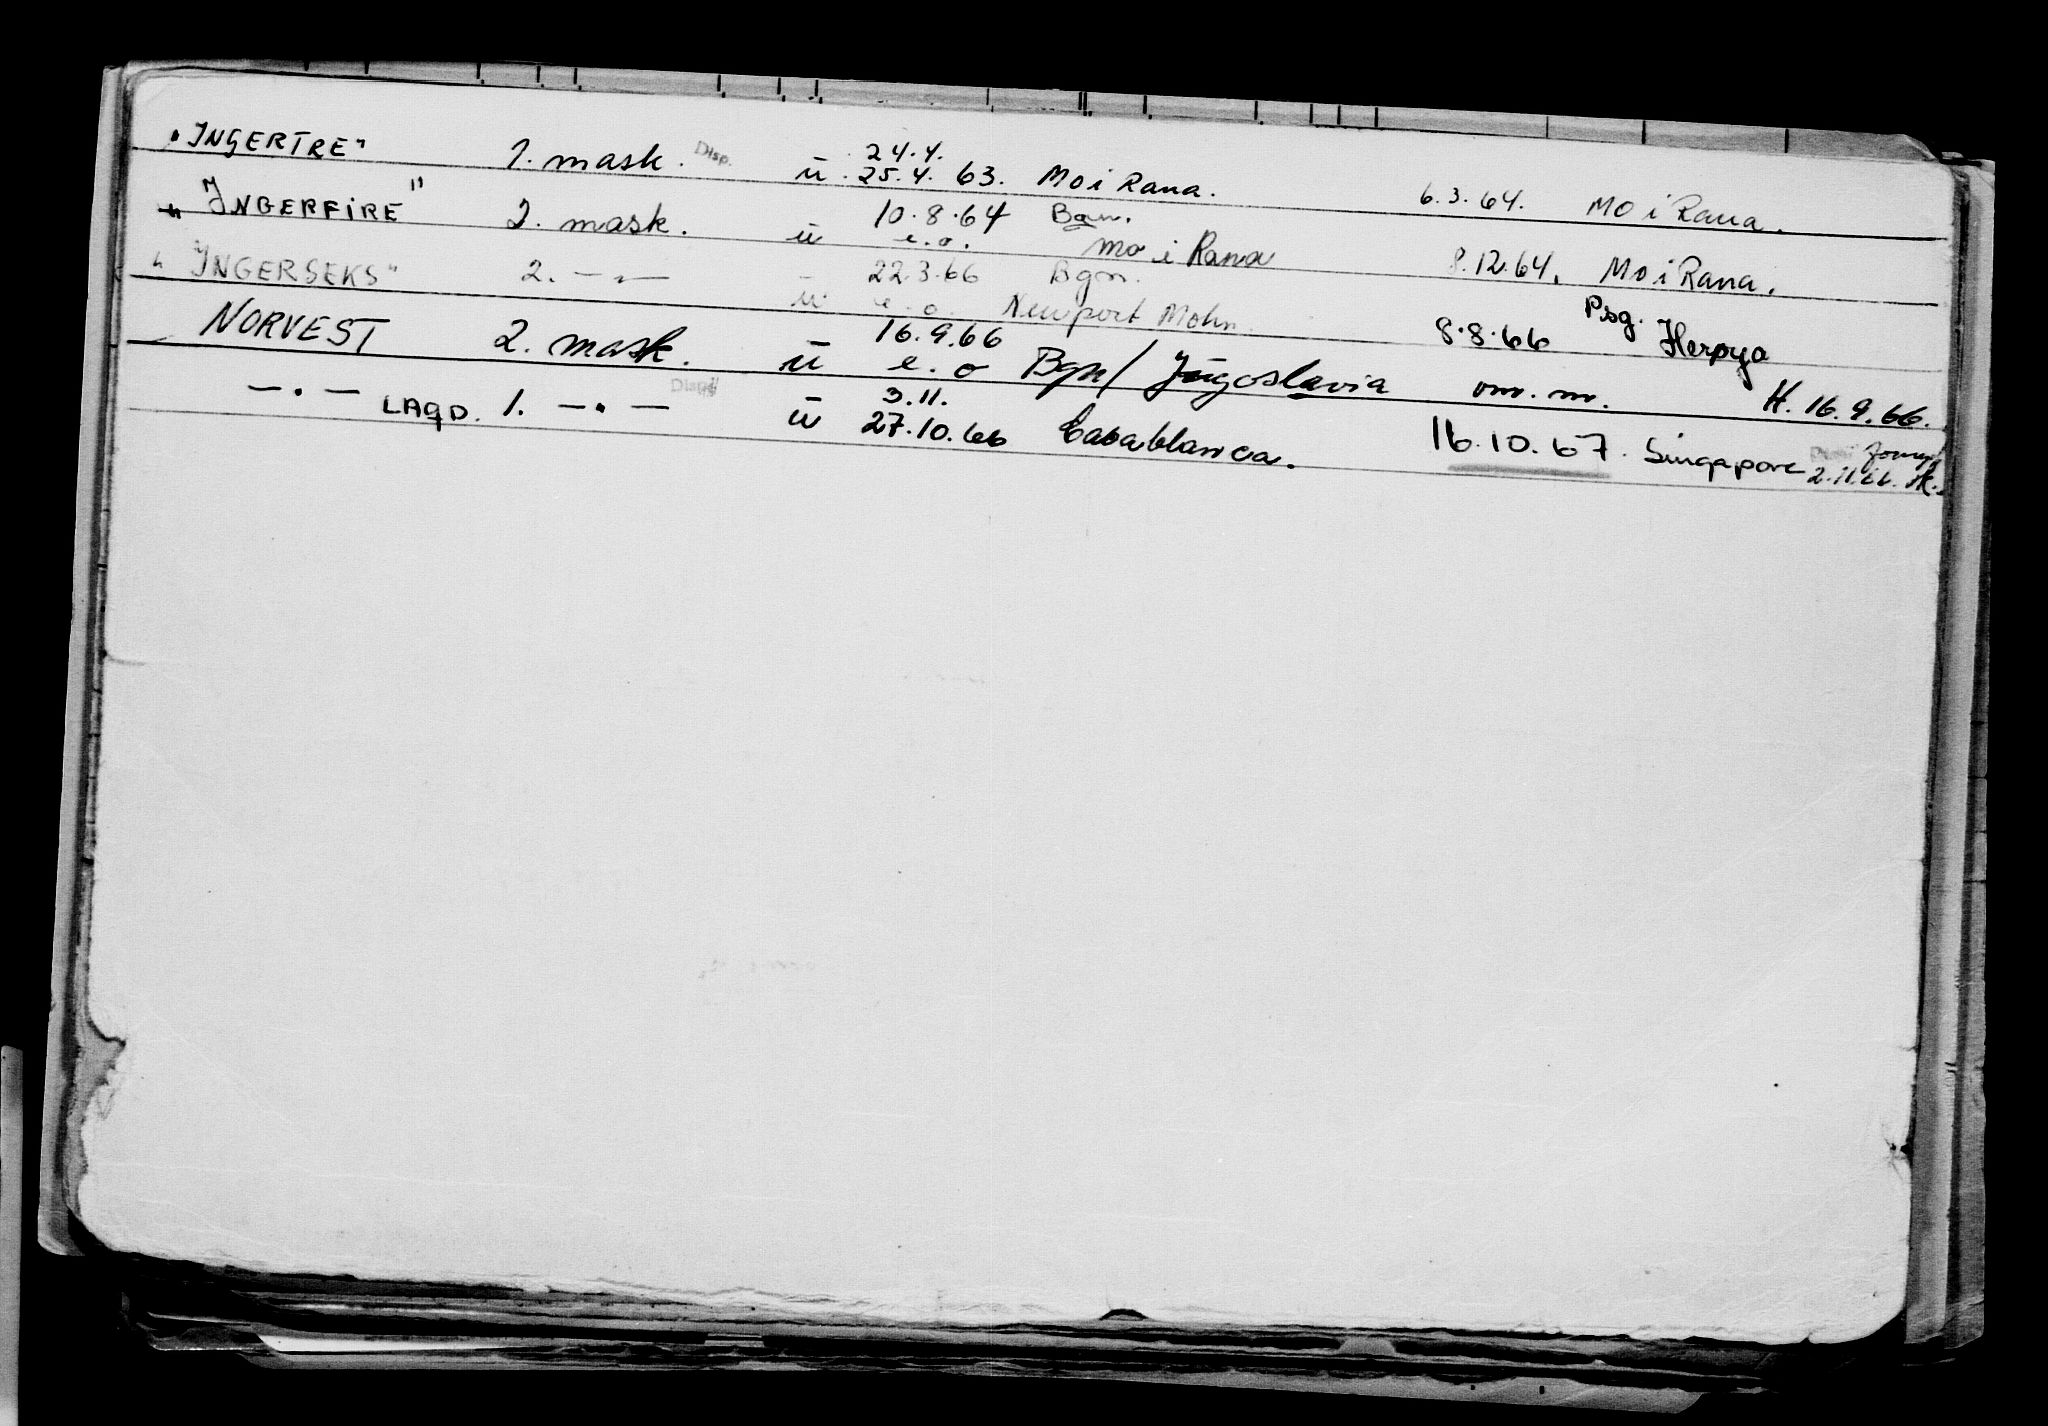 "INGERTRE" 1. mask. Disp. ü. 24.4. 25.4. 63. Mo i Rana. 6.3.64. Mo i Rana.
" INGERFIRE" 2. mask. ü 10.8.64 e.o. Bgn. Mo i Rana 8.12.64. Mo i Rana.
" INGERSEKS" 2. — " — ü 22.3.66 e.o. Bgn. Newport 8.8.66 Psg.
NORVEST 2. mask. ü 16.9.66 e.o Bgn/Jugoslavia om. m. H. 16.9.66.
— . — LAGD. 1. — . — Disp ü 3.11. 27.10.66 Casablanca. 16.10.67. Singapore 2.11.66.